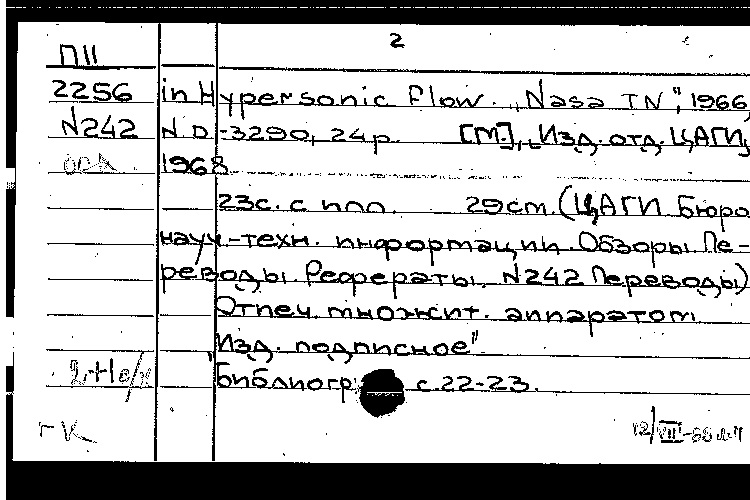 2
ПII
2256 in Hypersonic Flow. „Nasa TN", 1966,
N242 N D-3290, 24 p. [М.], Изд. отд. ЦАГИ,
1968
23с. с илл. 29см. (ЦАГИ. Бюро
науч.-техн. информации. Обзоры. Пе-
реводы. Рефераты. N242 Переводы)
Отпеч. множит. аппаратом
„Изд. подписное"
Библиогр: с. 22-23.